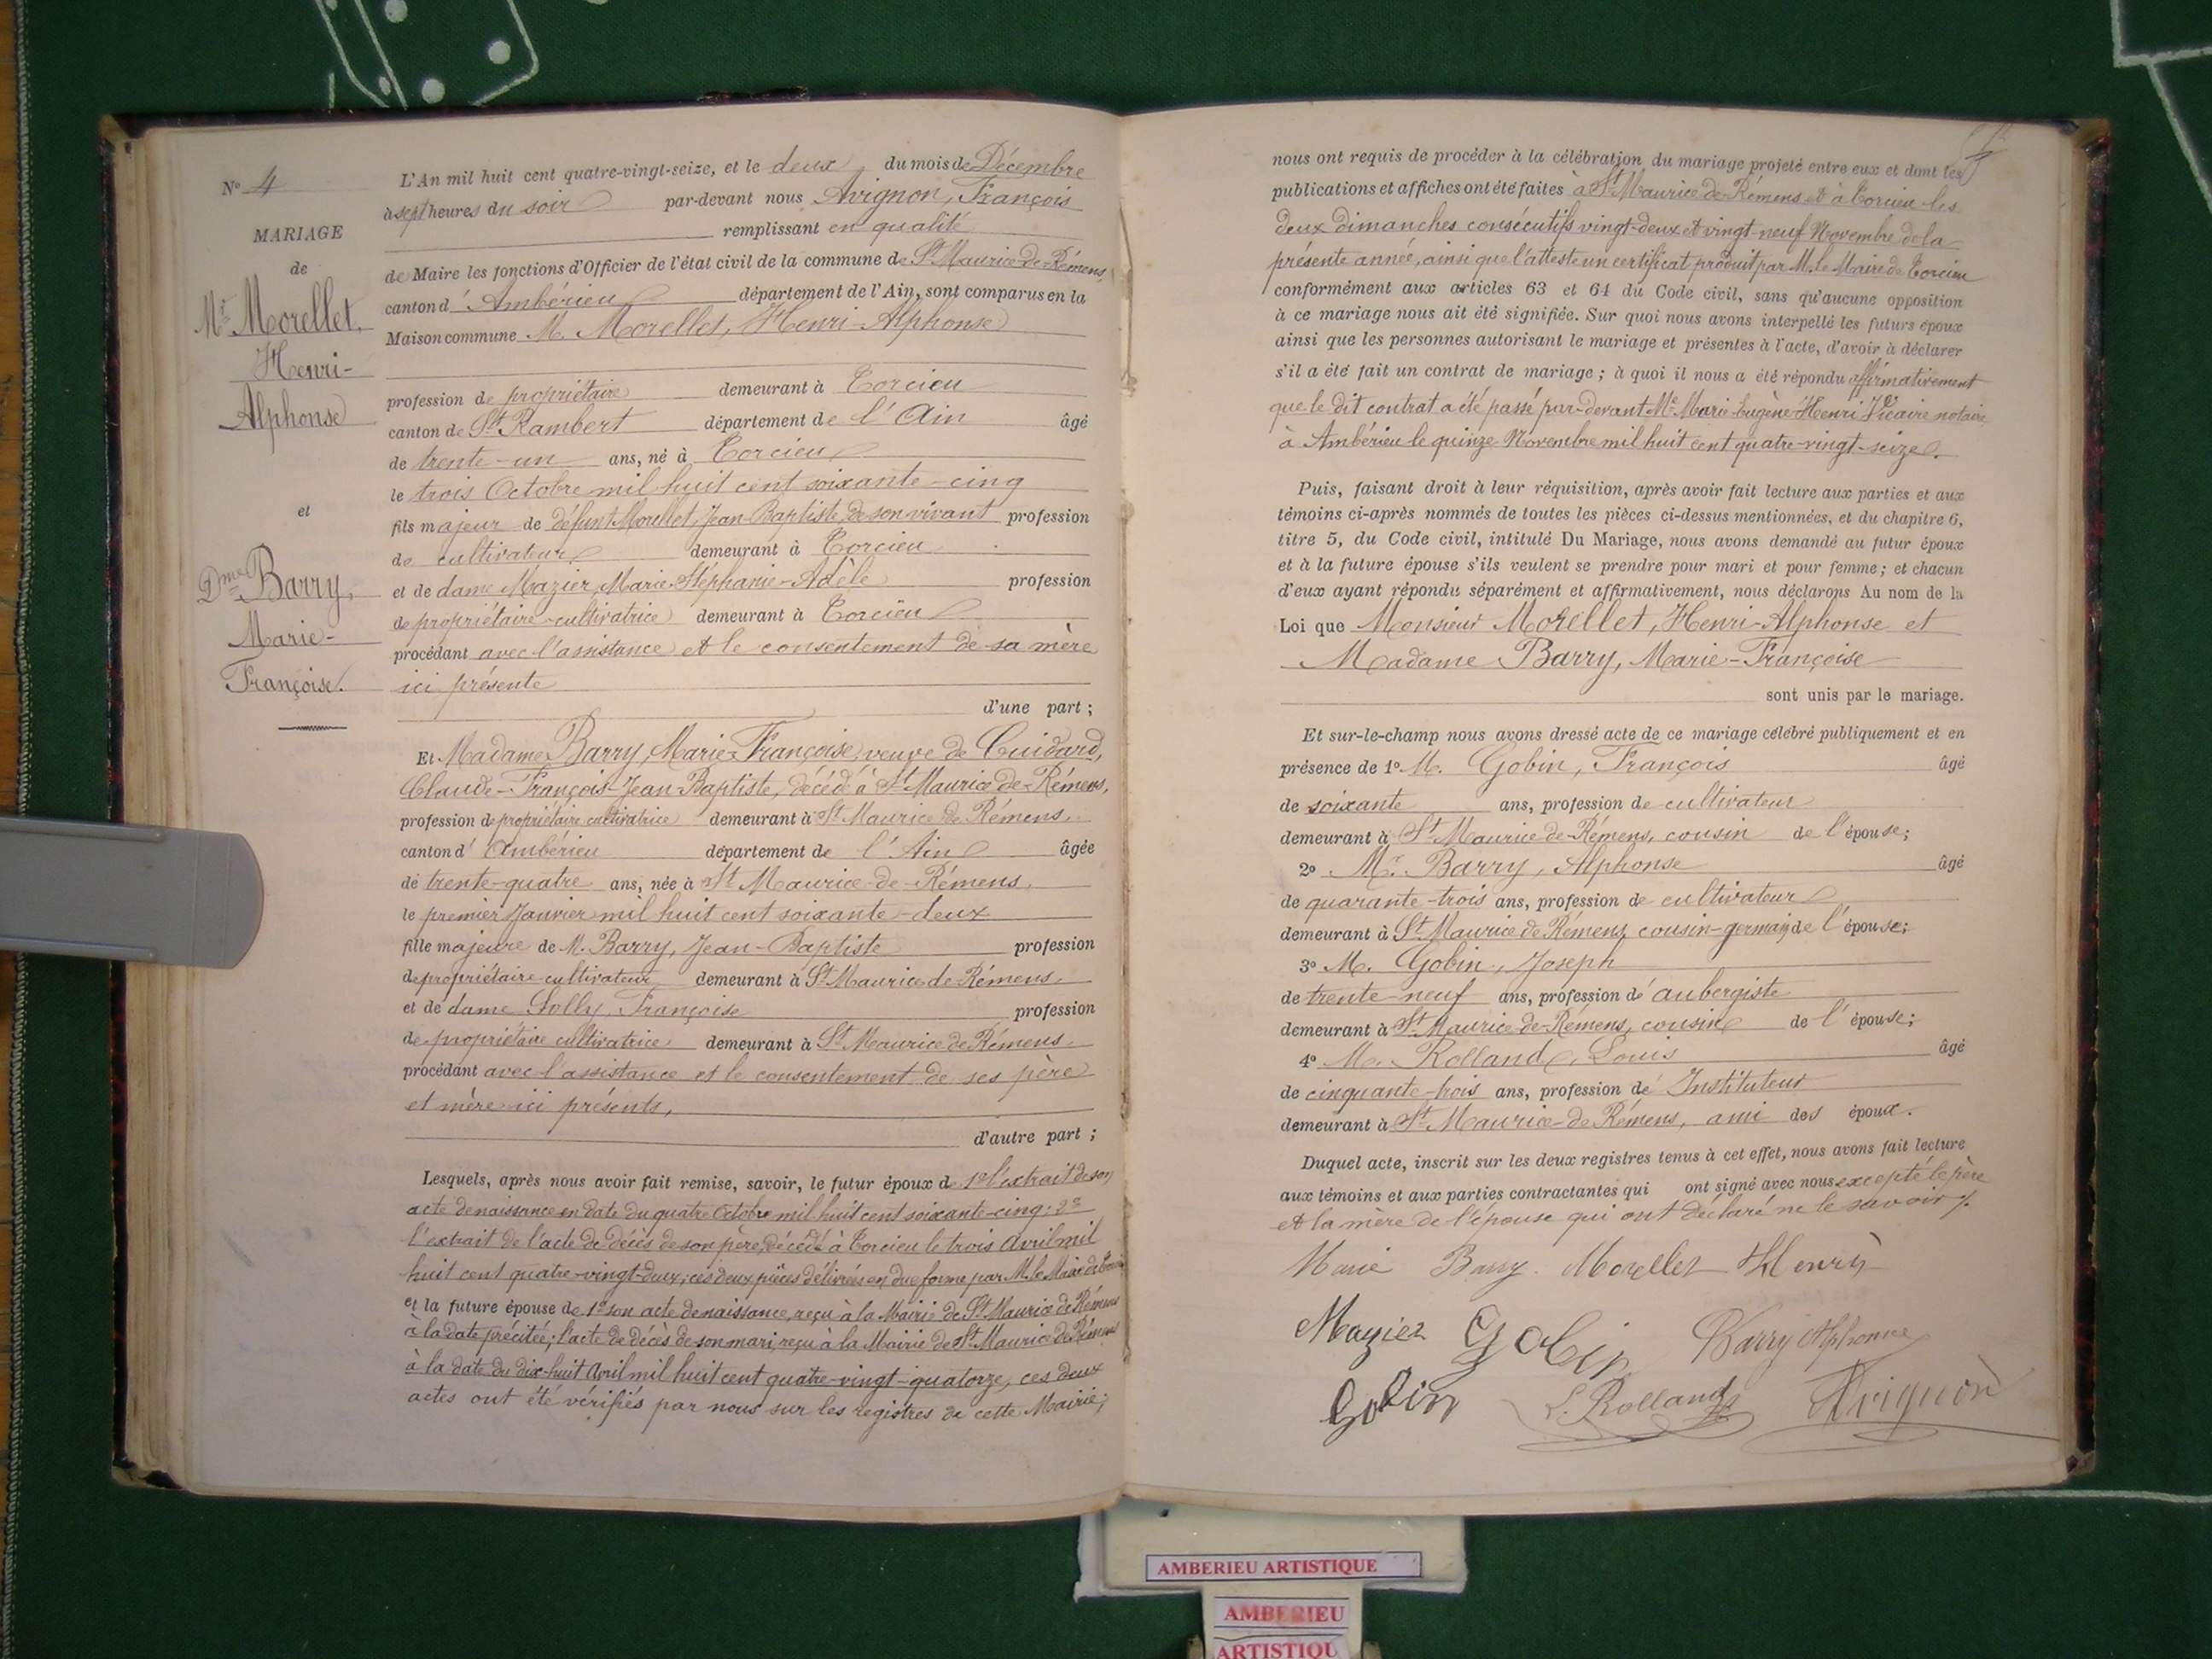 Nº 4
MARIAGE
de
Mr Morellet,
Henri-
Alphonse
et
Dme Barry,
Marie-
Françoise.
L'An mil huit cent quatre-vingt-seize, et le deux du mois de Décembre
à sept heures du soir par-devant nous Avignon, François
remplissant en qualité
de Maire les fonctions d'Officier de l'état civil de la commune de St Maurice de Rémens,
canton d' Ambérieu département de l'Ain, sont comparus en la
Maison commune M. Morellet, Henri-Alphonse
profession de propriétaire demeurant à Torcieu
canton de St Rambert département de l'Ain âgé
de trente-un ans, né à Torcieu
le trois Octobre mil huit cent soixante-cinq
fils majeur de défunt Morellet, Jean-Baptiste, de son vivant profession
de cultivateur demeurant à Torcieu
et de dame Mazier, Marie-Stéphanie-Adèle profession
de propriétaire-cultivatrice demeurant à Torcieu
procédant avec l'assistance et le consentement de sa mère
ici présente
d'une part ;
Et Madame Barry, Marie-Françoise, veuve de Cuidard,
Claude-François-Jean-Baptiste, décédé à St Maurice-de-Rémens,
profession de propriétaire cultivatrice demeurant à St Maurice de Rémens,
canton d' Ambérieu département de l'Ain âgée
de trente-quatre ans, née à St Maurice-de-Rémens,
le premier Janvier mil huit cent soixante-deux
fille majeure de M. Barry, Jean-Baptiste profession
de propriétaire-cultivateur demeurant à St Maurice de Rémens,
et de dame Solly, Françoise profession
de propriétaire cultivatrice demeurant à St Maurice de Rémens,
procédant avec l'assistance et le consentement de ses père
et mère ici présents,
d'autre part ;
Lesquels, après nous avoir fait remise, savoir, le futur époux de 1º l'extrait de son
acte de naissance en date du quatre Octobre mil huit cent soixante-cinq; 2º
l'extrait de l'acte de décès de son père, décédé à Torcieu le trois Avril mil
huit cent quatre-vingt-deux; ces deux pièces délivrées en due forme par M. le Maire de Torcieu
et la future épouse de 1º son acte de naissance, reçu à la Mairie de St Maurice de Rémens
à la date précitée; l'acte de décès de son mari, reçu à la Mairie de St Maurice de Rémens
à la date du dix-huit Avril mil huit cent quatre-vingt-quatorze, ces deux
actes ont été vérifiés par nous sur les registres de cette Mairie;
nous ont requis de procéder à la célébration du mariage projeté entre eux et dont les
publications et affiches ont été faites à St Maurice de Rémens et à Torcieu les
deux dimanches consécutifs vingt-deux et vingt-neuf Novembre de la
présente année, ainsi que l'atteste un certificat produit par M. le Maire de Torcieu
conformément aux articles 63 et 64 du Code civil, sans qu'aucune opposition
à ce mariage nous ait été signifiée. Sur quoi nous avons interpellé les futurs époux
ainsi que les personnes autorisant le mariage et présentes à l'acte, d'avoir à déclarer
s'il a été fait un contrat de mariage ; à quoi il nous a été répondu affirmativement
que le dit contrat a été passé par-devant Me Marie-Eugène-Henri Vicaire notaire
à Ambérieu le quinze Novembre mil huit cent quatre-vingt-seize.
Puis, faisant droit à leur réquisition, après avoir fait lecture aux parties et aux
témoins ci-après nommés de toutes les pièces ci-dessus mentionnées, et du chapitre 6,
titre 5, du Code civil, intitulé Du Mariage, nous avons demandé au futur époux
et à la future épouse s'ils veulent se prendre pour mari et pour femme ; et chacun
d'eux ayant répondu séparément et affirmativement, nous déclarons Au nom de la
Loi que Monsieur Morellet, Henri-Alphonse et
Madame Barry, Marie-Françoise
sont unis par le mariage.
Et sur-le-champ nous avons dressé acte de ce mariage célébré publiquement et en
présence de 1º M. Gobin, François âgé
de soixante ans, profession de cultivateur
demeurant à St Maurice-de-Rémens, cousin de l'épouse;
2º Mr. Barry, Alphonse âgé
de quarante-trois ans, profession de cultivateur
demeurant à St Maurice de Rémens, cousin-germain de l'épouse;
3º M. Gobin, Joseph
de trente-neuf ans, profession d'aubergiste
demeurant à St Maurice-de-Rémens, cousin de l'épouse;
4º M. Rolland, Louis âgé
de cinquante-trois ans, profession d'Instituteur
demeurant à St Maurice-de-Rémens, ami des époux.
Duquel acte, inscrit sur les deux registres tenus à cet effet, nous avons fait lecture
aux témoins et aux parties contractantes qui ont signé avec nous excepté le père
et la mère de l'épouse qui ont déclaré ne le savoir ./.
Marie Barry Morellet Henri
Mazier Gobin Barry Alphonse
Gobin L. Rolland Avignon
AMBERIEU ARTISTIQUE
AMBERIEU
ARTISTIQU